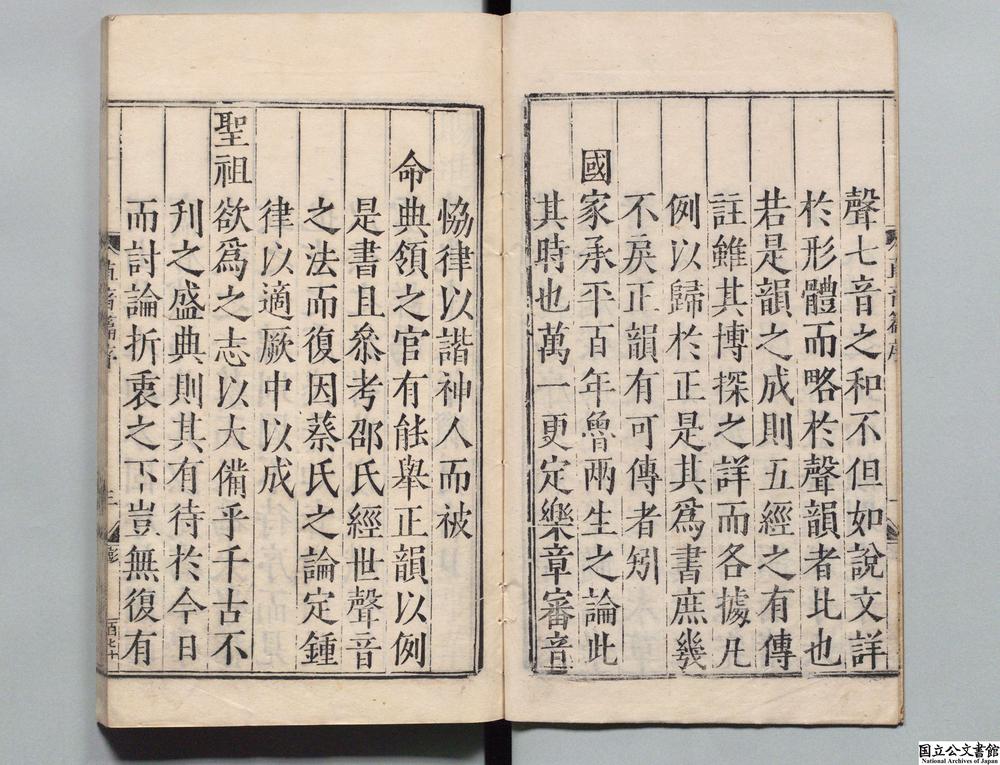 聲七音之和不但如說文詳
於形體而略於聲韻者比也
若是韻之成則五經之有傳
註雖其博探之詳而各據凡
例以歸於正是其爲書庶幾
不戾正韻有可傳者矧
國家承平百年魯兩生之論此
其時也萬一更定樂章審音
協律以諧神人而被
命典領之官有能舉正韻以例
是書且叅考邵氏經世聲音
之法而復因蔡氏之論定鍾
律以適厥中以成
聖祖欲爲之志以大備乎千古不
刋之盛典則其有待於今日
而討論折衷之下豈無復有
直音篇序
三
国立公文書館
National Archives of Japan